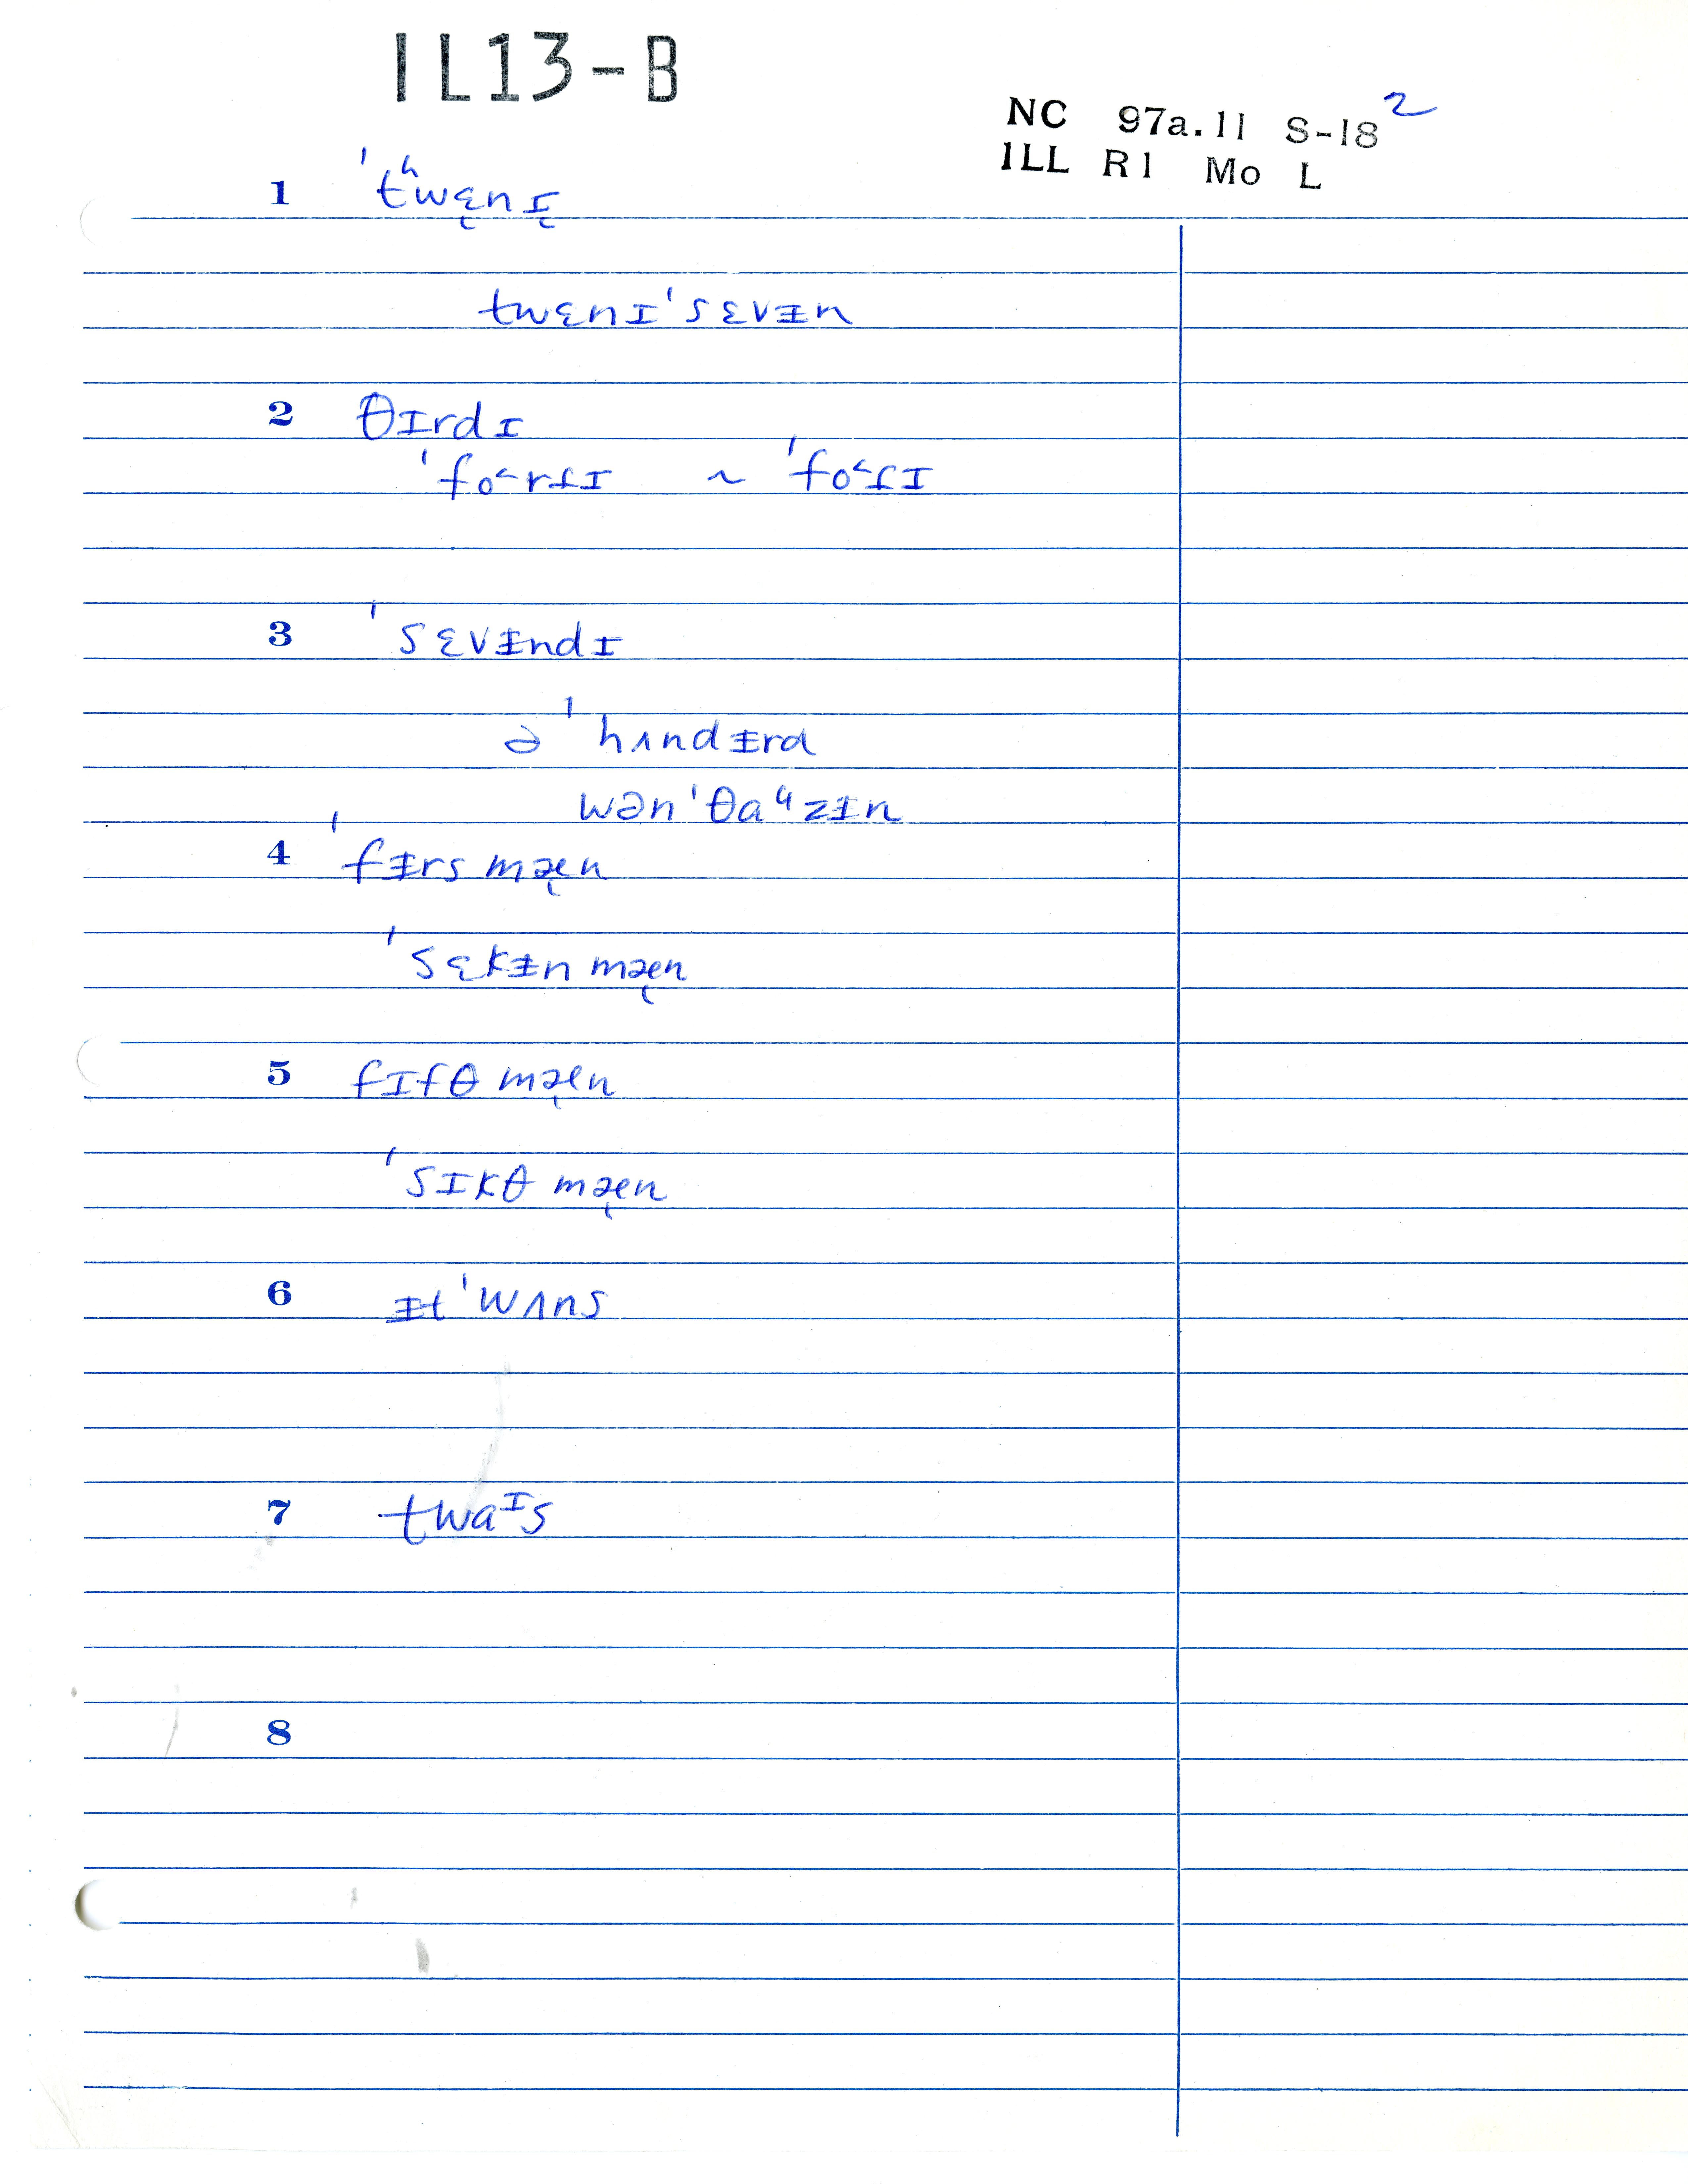 IL13-B
NC 97a.11 S-18 2
ILL R1 Mo L
1 ˈtʰwɛ̨nɪ̨
twɛnɪˈsɛvᵻn
2 θɪrdɪ
ˈfo˂rɾɪ ~ ˈfo˂ɾɪ
3 ˈsɛvᵻndɪ
ə ˈhʌndᵻrd
wənˈθaᶣzᵻn
4 ˈfᵻrs mæ̨n
ˈsɛkᵻn mæ̨n
5 fɪfθ mæ̨n
ˈsɪkθ mæ̨n
6 ᵻtˈwʌns
7 twaᶦs
8